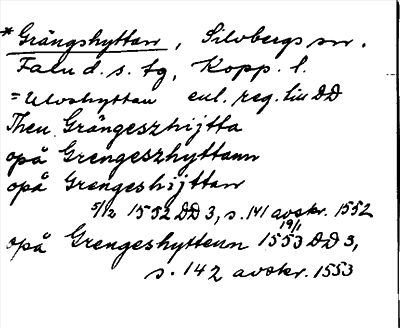 *Grängshyttan, Silvbergs sn.
Falu d. s. tg, Kopp. l.
= Ulvshyttan enl. reg. till DD
Then Grängeszhijtta
opå Grengeszhyttann
opå Grengeshijttan
5/12 1552 DD 3, s. 141 avskr. 1552
opå Grengeshyttenn 19/1 1553 DD 3,
s. 142 avskr. 1553